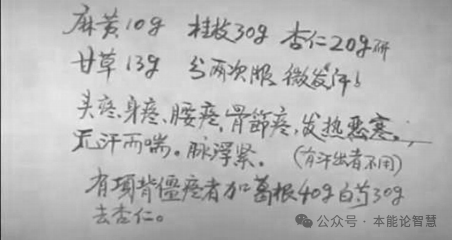 麻黄10g 桂枝30g 杏仁20g研
甘草13g 分两次服 微发汗
头疼、身疼、腰疼、骨節疼,发热恶寒,
无汗而喘。脉浮紧。(有汗出者不用)
有項背僵疼者加葛根40g白芍30g
去杏仁。
公众号·本能论智慧